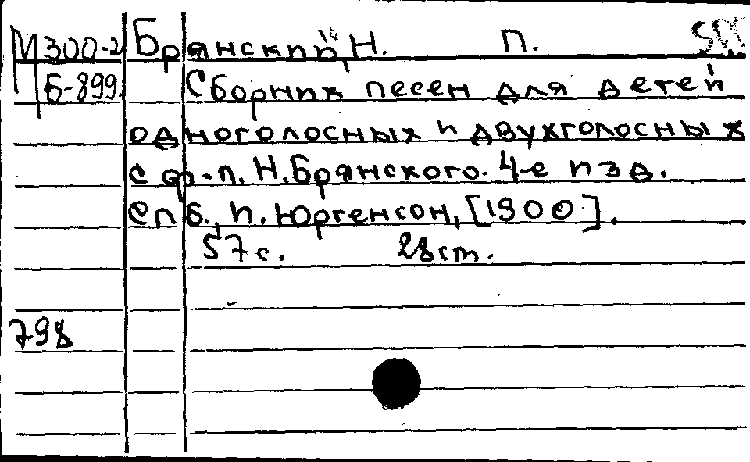 М300-2 Брянский, Н. П.
Б-899 Сборник песен для детей
одноголосных и двухголосных
с ф.-п. Н. Брянского. 4-е изд.
Спб., П. Юргенсон, [1900].
57 с. 28 cm.
798